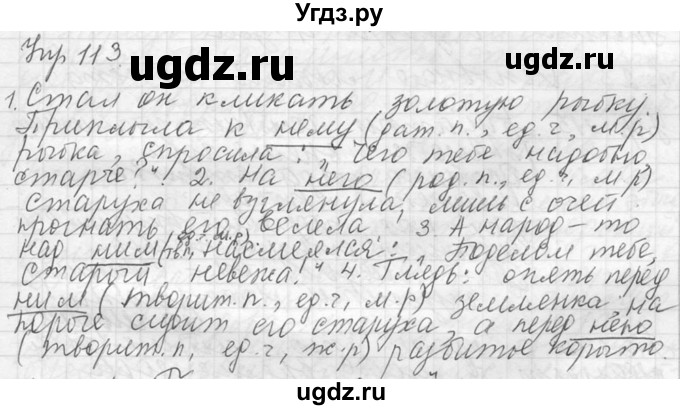 Угдз.ру
Упр 113
ugdz.ru
ugdz.ru
1. Стал он кликать золотую рыбку.
Приплыла к нему (дат. п., ед. ч, м. р)
рыбка, спросила: "Чего тебе надобно,
старче?". 2. На него (род. п., ед. ч, м. р)
старуха не взглянула, лишь с очей
прогнать его велела. 3. А народ-то
над ним насмеялся: "Поделом тебе,
старый невежа!" 4. Глядь: опять перед
ним (творит. п., ед. ч, м. р) землянка, на
пороге сидит его старуха, а перед нею
(творит. п, ед. ч, ж. р) разбитое корыто.
ugdz.ru
ugdz.ru